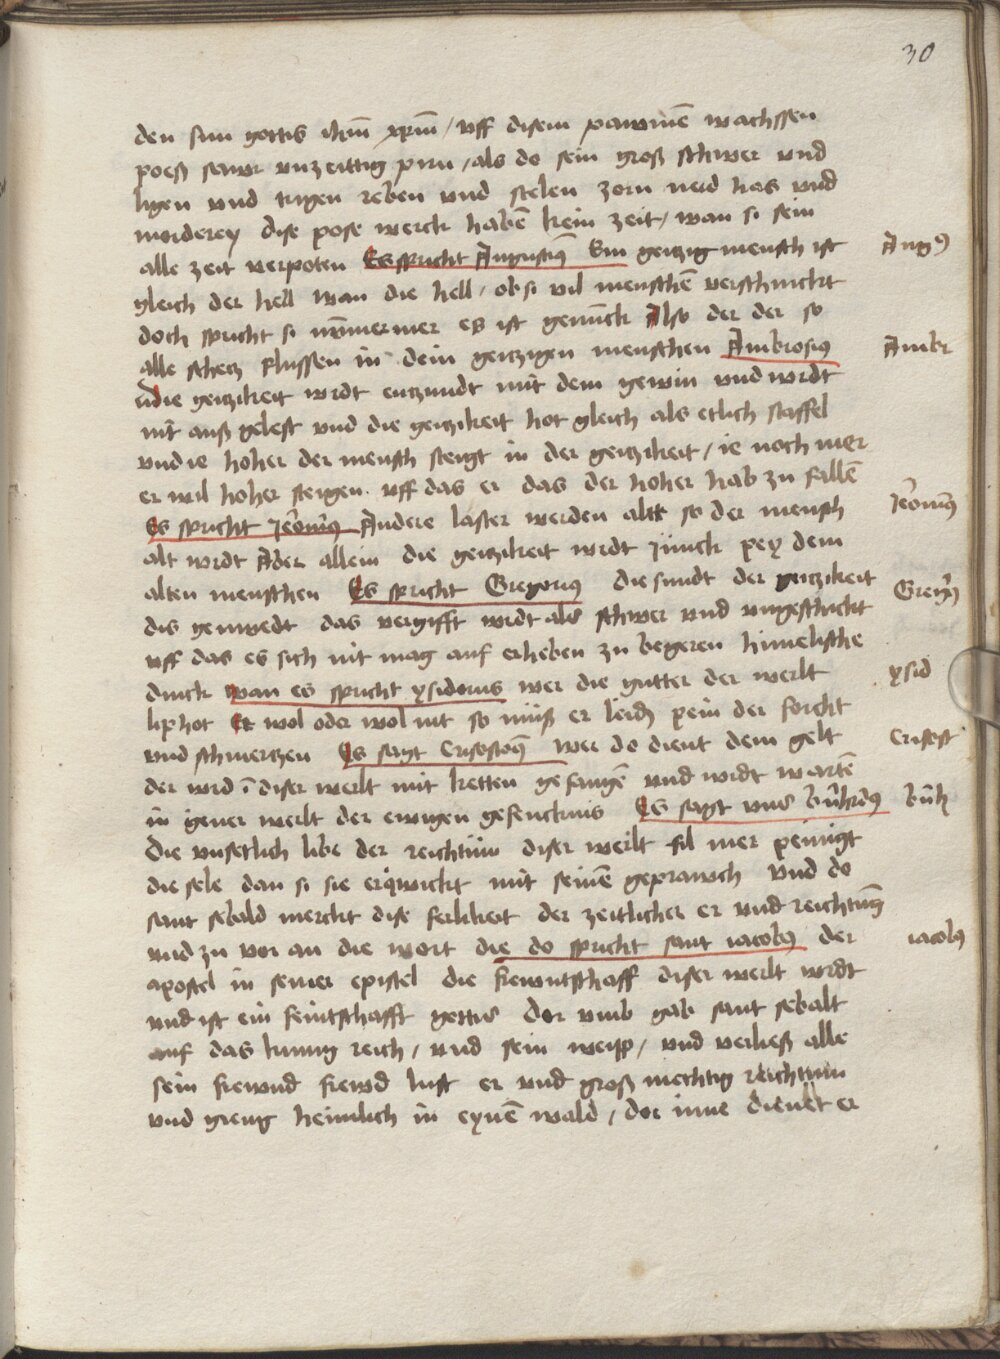 30
den sun gottis ihm̄ xpm̄ / uff disem pawmē wachssen
poeß sawr unzeittig pirn / als do sein groß schwer und
ligen und trigen reben und stelen zorn neid has und
morderey dise pose werck habē kein zeit / wan si sein
alle zeit verpoten Es spricht Augustiꝰ Ein geitzig mensch ist
Augꝰ
gleich der hell wan die hell / ob si vil menschē verschnickt
doch spricht si nỹmermer es ist genuck Also der der so
alle schetz flussen in dein geitzigen menschen Ambrosiꝰ
Ambr
die geitzikeit wirdt entzundt mit dem gewin und wirdt
nit auß gelest und die geitzikeit hot gleich als etlich staffel
und ie hoher der mensch steigt in der geitzikeit / ie noch mer
er wil hoher steigen uff das er das der hoher hab zu fallē
Es spricht Jeronimꝰ Andere laster werden alt so der mensch
Jeronimꝰ
alt wirdt Ader allein die geitzikeit wirdt Junck pey dem
alten menschen Es spricht Gregorius die sundt der geitzikeit
Gregꝰ
dis gemuedt das vergifft wirdt als schwer und ungeschickt
uff das es sich nit mag auf erheben zu begeren himelische
dinck wan es spricht ysidorus wer die gutter der werlt
ysid
lip hot Er wol oder wol nit so muß er leidē pein der forcht
und schmertzen Es sagt Crisostoꝰ wer do dient dem gelt
Crisost
der wird ī diser werlt mit ketten gefangē und wirdt wartē
in gener werlt der ewigen gefencknus Es sagt uns bñhrdꝰ
bñh
die unsetlich libe der reichtum diser werlt fil mer peinigt
die sele dan si sie erqwickt mit seinē geprawch Und do
sant sebald merckt dise ferlikeit der zeitlicher er und reichtum
und zu vor an die wort die do spricht sant iacobꝰ der
iacobꝰ
apostel in seiner epistel die frewntschaff diser werlt wirdt
und ist ein feintschafft gottis Dor umb gab sant sebalt
auf das kunig reich / und sein weip / und verließ alle
sein frewnd frewd lust er und groß mechtig reichtum
und gieng heimlich in eynē wald / dor inne dienet er